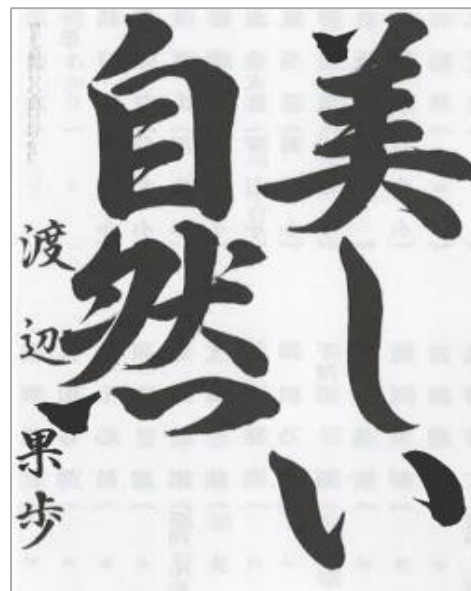 美しい
自然
渡辺果歩